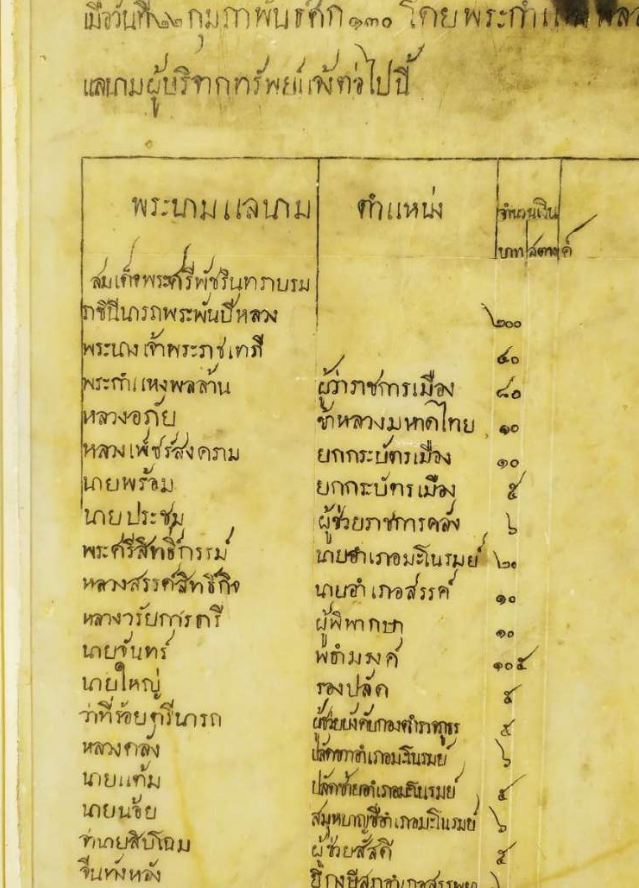 เมื่อวันที่๒๒ กุมภาพันธ์ศก ๑๓๐ โดยพระกำแพงพล
แลนามผู้บริจากทรัพย์แจ้งต่อไปนี้
พระนามแลนาม ตำแหน่ง จำนวนเงิน
บาท สตางค์
สมเด็จพระศรีพัชรินทราบรม
ราชินีนารถพระพันปีหลวง ๒๐๐
พระนางเจ้าพระราชเทวี ๔๐
พระกำแหงพลล้าน ผู้ว่าราชการเมือง ๘๐
หลวงอภัย ข้าหลวงมหาดไทย ๑๐
หลวงเพ็ชร์สงคราม ยกกระบัตรเมือง ๑๐
นายพร้อม ยกกระบัตรเมือง ๕
นายประชุม ผู้ช่วยราชการคลัง ๖
พระศรีสิทธิ์กรรม์ นายอำเภอมะโนรมย์ ๒๐
หลวงสรรค์สิทธิกิจ นายอำเภอสรรค์ ๑๐
หลวงวารัยการตรี ผู้พิพากษา ๑๐
นายจันทร์ พธำมรงค์ ๑๐๕
นายใหญ่ รองปลัด ๕
ว่าที่ร้อยตรีนารถ ผู้ช่วยบังคับกองตำรวจภูธร ๕
หลวงคลัง ปลัดขวาอำเภอมะโนรมย์ ๖
นายแต้ม ปลัดซ้ายอำเภอมะโนรมย์ ๕
นายน้อย สมุหบาญชีอำเภอมะโนรมย์ ๖
ท่านายสิบโฉม ผู้ช่วยสัสดี ๕
จีนทั่งหลัง